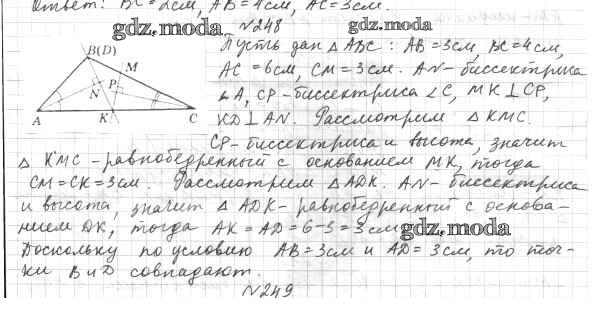 Ответ: BC = 2см, AB = 4см, AC = 3см.
№248
gdz.moda
gdz.moda
B(D)
M
N
P
A
K
C
Пусть дан △ABC : AB = 3см, BC = 4см,
AC = 6см, CM = 3см. AN - биссектриса
∠A, CP - биссектриса ∠C, MK ⊥ CP,
KD ⊥ AN. Рассмотрим △ KMC.
CP - биссектриса и высота, значит
△ KMC - равнобедренный с основанием MK, тогда
CM = CK = 3см. Рассмотрим △ ADK. AN - биссектриса
и высота, значит △ ADK - равнобедренный с основа-
нием DK, тогда AK = AD = 6-3 = 3см
gdz.moda
Поскольку по условию AB = 3см и AD = 3см, то точ-
ки B и D совпадают.
№249